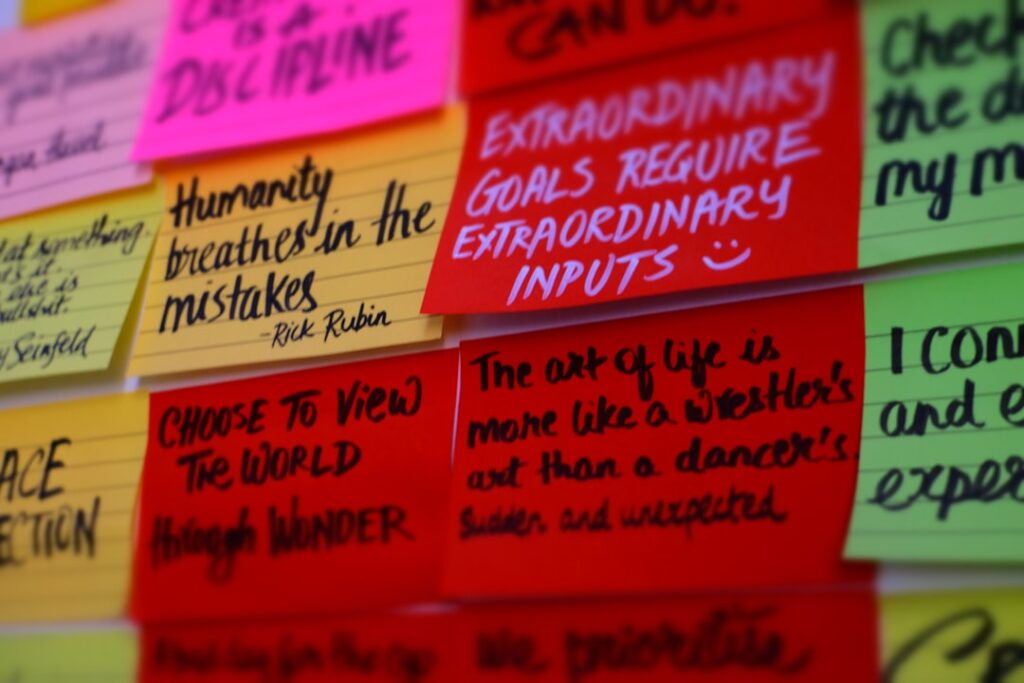 IS A
DISCIPLINE
CAN DO.
Check
the
my
at something.
it.
she is
Seinfeld
Humanity
breathes in the
mistakes
-Rick Rubin
EXTRAORDINARY
GOALS REQUIRE
EXTRAORDINARY
INPUTS
ACE
ECTION
CHOOSE TO VIEW
THE WORLD
through WONDER
The art of life is
more like a wrestler's
art than a dancer's.
Sudden and unexpected
I CON
and e
exper
for the
We prioritise